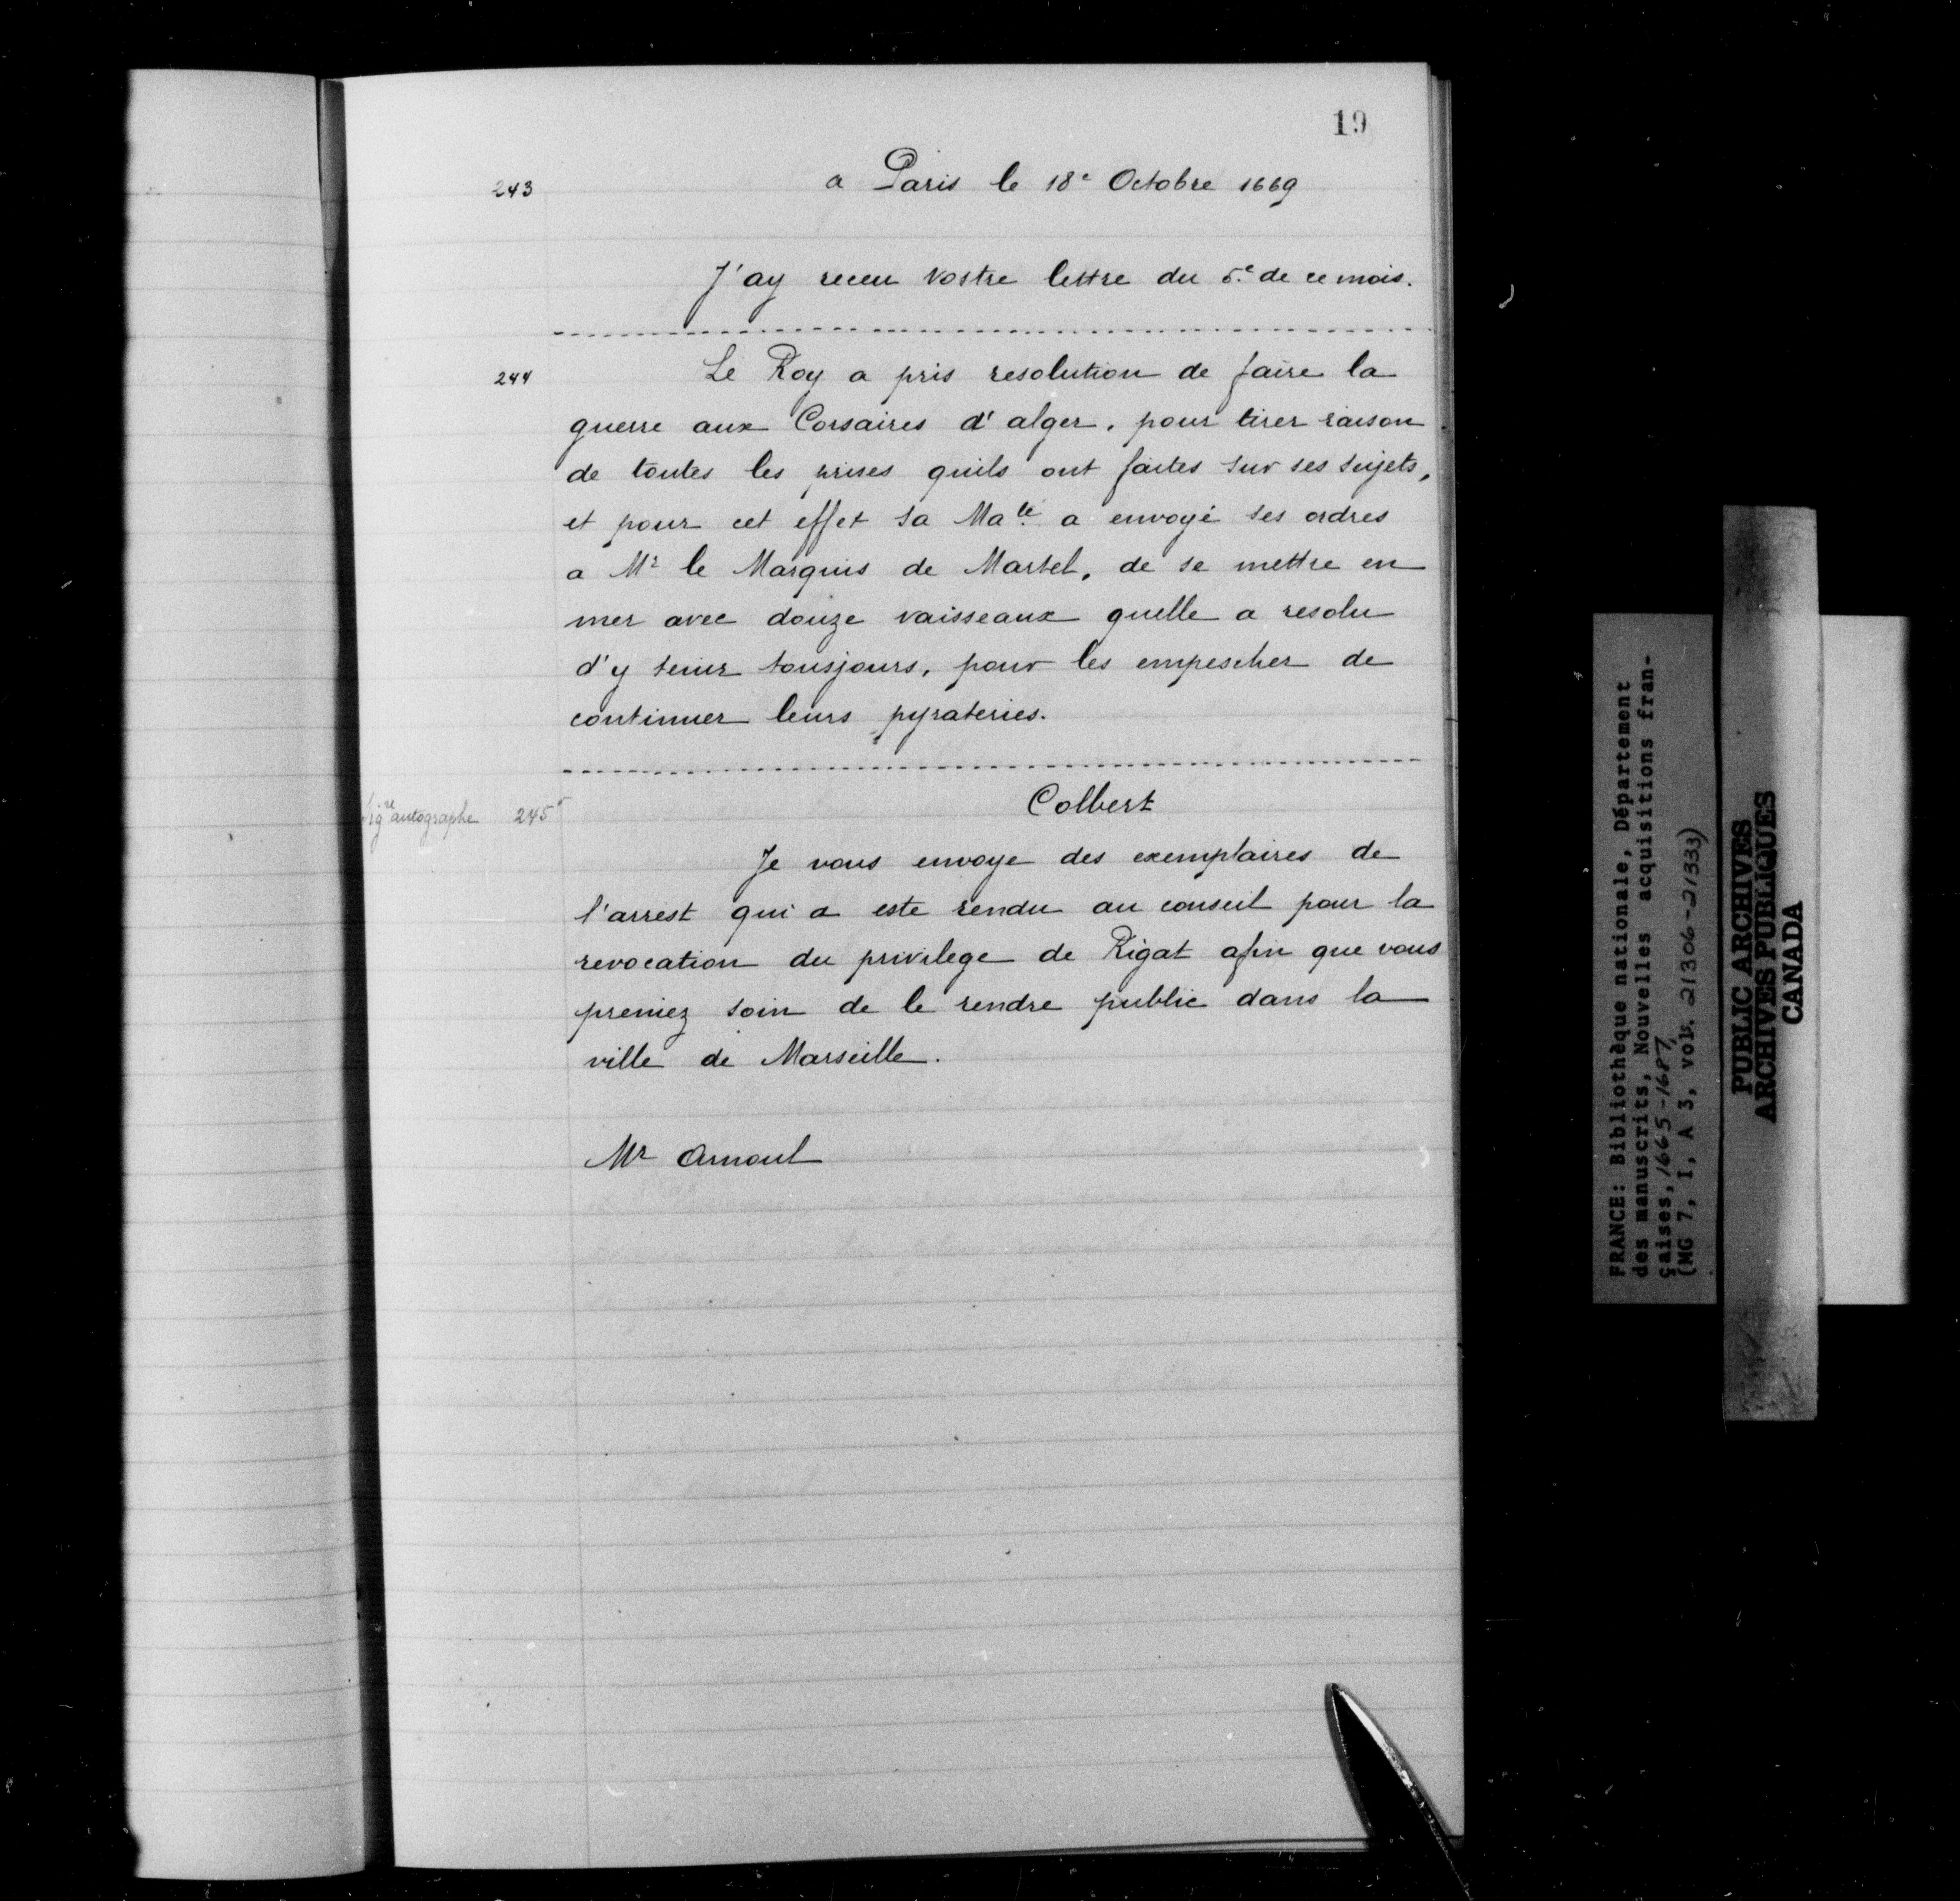 19
243 a Paris le 18e Octobre 1669
J'ay receu vostre lettre du 5e de ce mois.
244 Le Roy a pris resolution de faire la
guerre aux Corsaires d'alger, pour tirer raison
de toutes les prises quils ont faites sur ses sujets,
et pour cet effet sa Mate a envoyé ses ordres
a Mr le Marquis de Martel, de se mettre en
mer avec douze vaisseaux quelle a resolu
d'y tenir tousjours, pour les empescher de
continuer leurs pyrateries.
Sigre autographe 245 Colbert
Je vous envoye des exemplaires de
l'arrest qui a este rendu au conseil pour la
revocation du privilege de Rigat afin que vous
preniez soin de le rendre public dans la
ville de Marseille.
Mr Arnoul
FRANCE: Bibliothèque nationale, Département
des manuscrits, Nouvelles acquisitions fran-
çaises, 1665-1687,
(MG 7, I, A 3, vols. 21306-21333)
PUBLIC ARCHIVES
ARCHIVES PUBLIQUES
CANADA